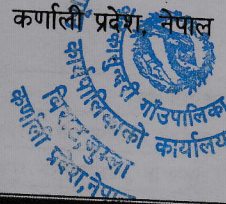 कर्णाली प्रदेश, नेपाल
गाउँपालिका
कार्यपालिकाको कार्यालय
जुम्ला
कर्णाली प्रदेश, नेपाल